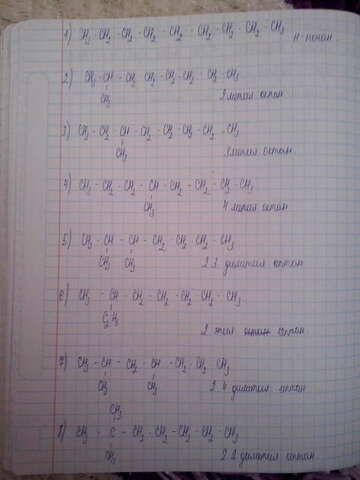 1) CH₃ - CH₂ - CH₂ - CH₂ - CH₂ - CH₂ - CH₂ - CH₂ - CH₃
н-нонан
2) CH₃ - CH - CH₂ - CH₂ - CH₂ - CH₂ - CH₂ - CH₃
CH₃
2 метил октан
3) CH₃ - CH₂ - CH - CH₂ - CH₂ - CH₂ - CH₂ - CH₃
CH₃
3 метил октан
4) CH₃ - CH₂ - CH₂ - CH - CH₂ - CH₂ - CH₂ - CH₃
CH₃
4 метил октан
5) CH₃ - CH - CH - CH₂ - CH₂ - CH₂ - CH₃
CH₃ CH₃
2.3 диметил гептан
6) CH₃ - CH - CH₂ - CH₂ - CH₂ - CH₂ - CH₃
C₂H₅
2 этил гептан
7) CH₃ - CH - CH₂ - CH - CH₂ - CH₂ - CH₃
CH₃ CH₃
2.4 диметил гептан
CH₃
8) CH₃ - C - CH₂ - CH₂ - CH₂ - CH₂ - CH₃
CH₃
2.2 диметил гептан